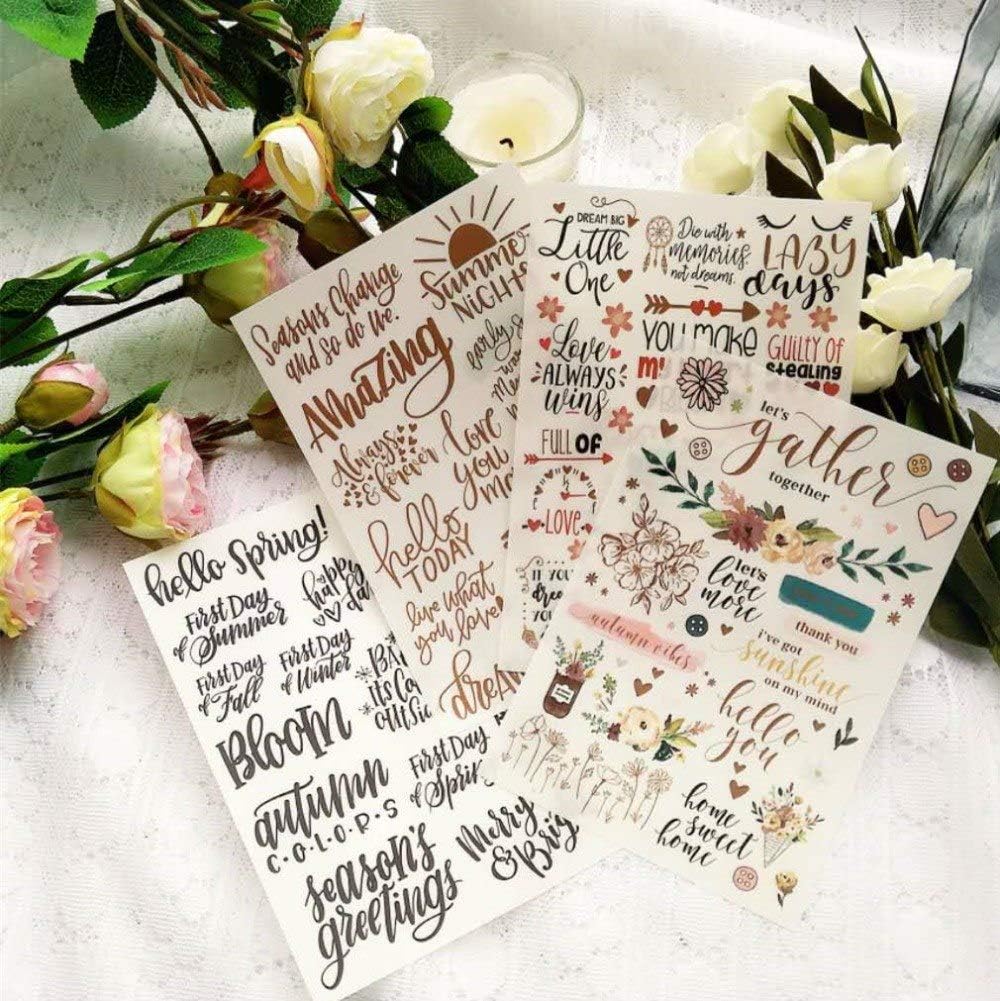 hello Spring!
First Day
of Summer
happy
First Day
of Fall
First Day
of Winter
Bloom
its
autumn
C·O·L·O·R·S
First Day
of
season's
greetings
Merry
&
Seasons Change
and so do we.
Amazing
Always
& forever
love
you
hello
TODAY
live what
you love
NIGHTS
early
DREAM BIG
Little
One
Die with
memories
not dreams.
LAZY
days
Love
ALWAYS
wins
YOU MAKE
GUILTY OF
stealing
FULL OF
LOVE
IF YOU
let's
gather
together
let's
love
more
thank you
autumn vibes
i've got
sunshine
on my mind
hello
you
home
sweet
home